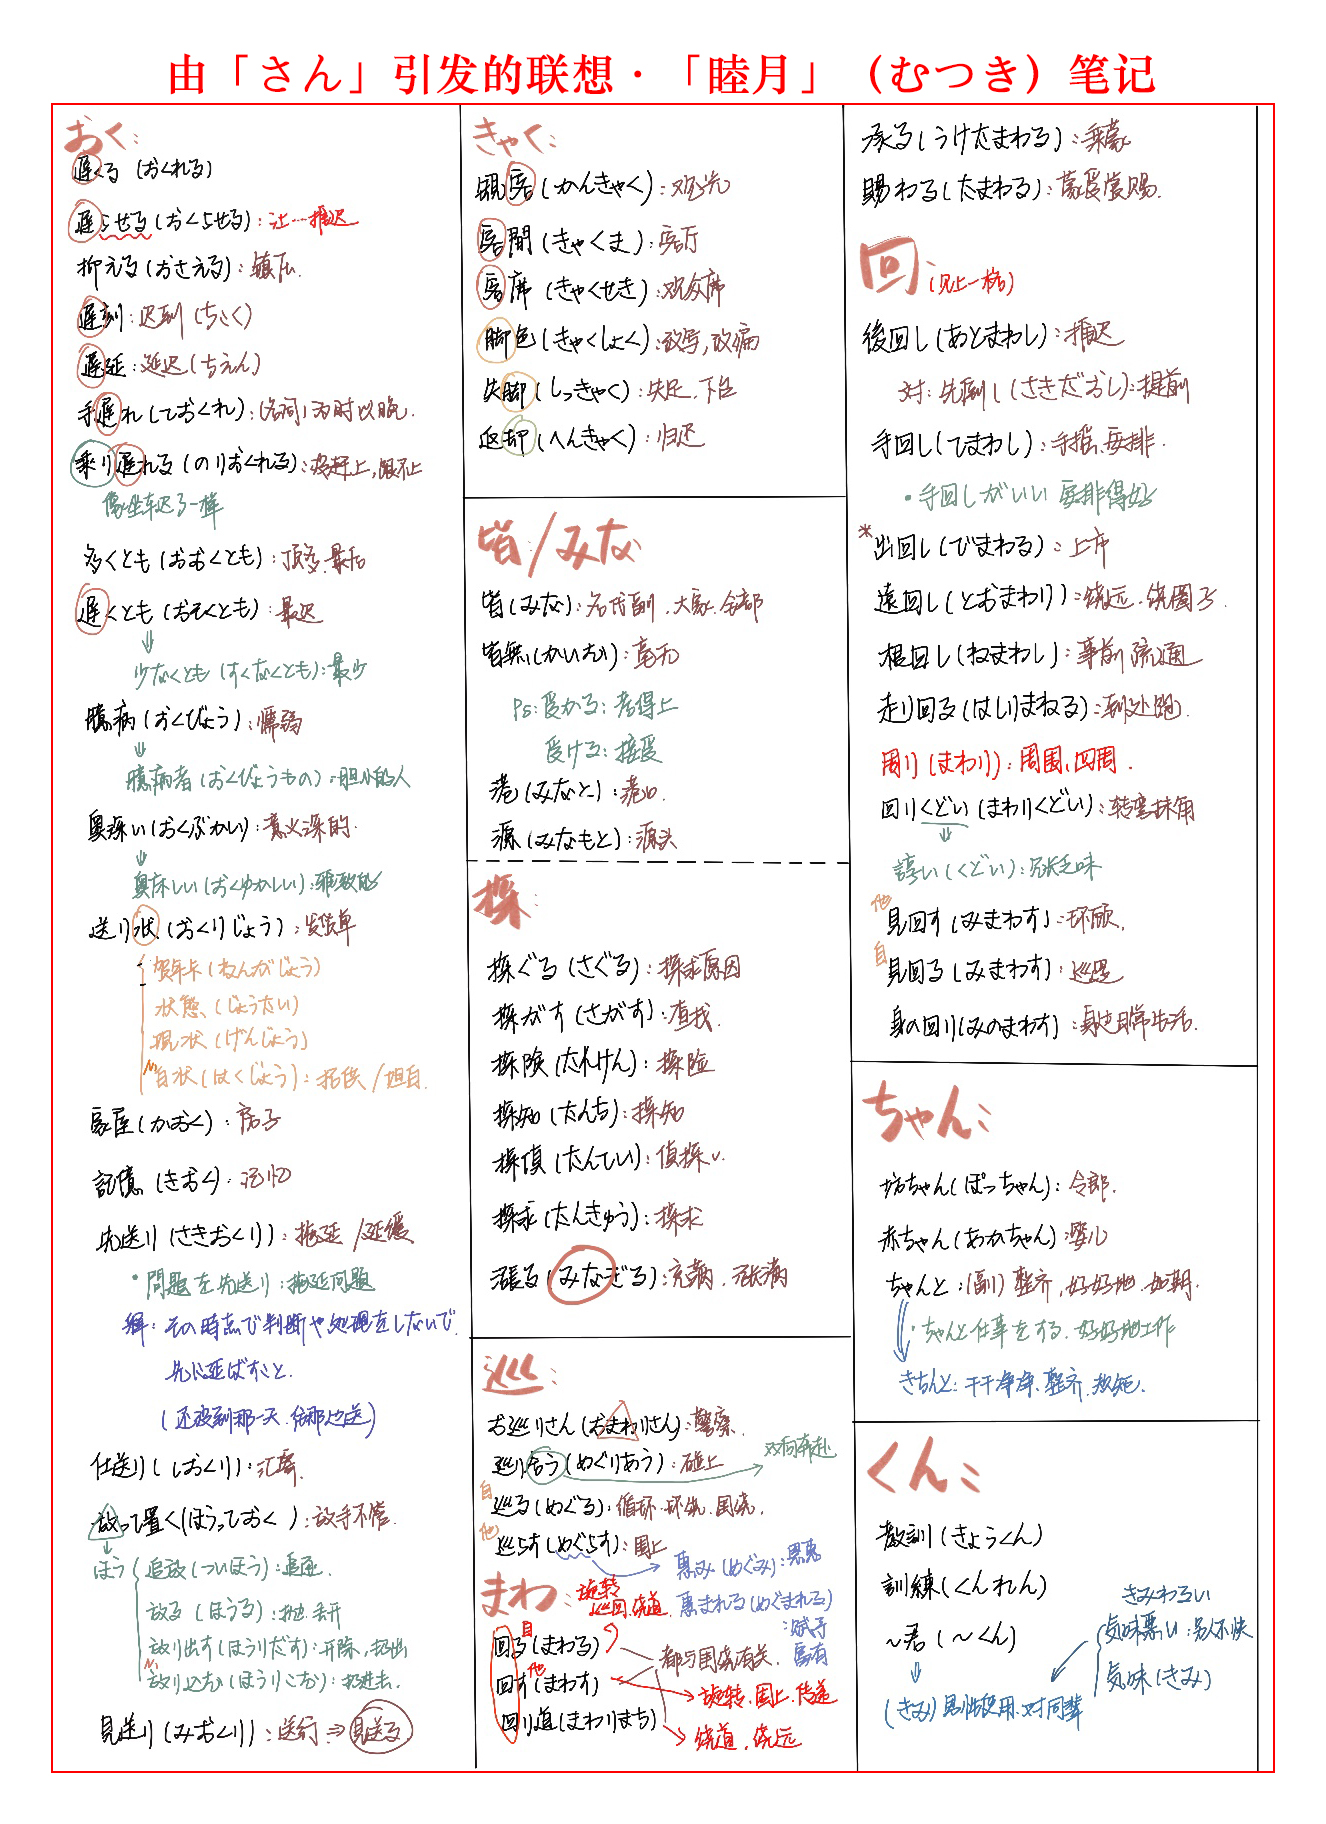 由「さん」引发的联想·「睦月」（むつき）笔记
おく：
遅くる（おくれる）
遅らせる（おくらせる）：让…推迟
抑える（おさえる）：镇压.
遅刻：迟到（ちこく）
遅延：延迟（ちえん）
手遅れ（ておくれ）：(名词)为时以晚.
乘り遅れる（のりおくれる）：没赶上,跟不上
像坐车迟了一样
多くとも（おおくとも）：顶多.最后
遅くとも（おそくとも）：最迟
少なくとも（すくなくとも）：最少
臆病（おくびょう）：懦弱
臆病者（おくびょうもの）：胆小的人
奥深い（おくぶかい）：意义深的.
奥床しい（おくゆかしい）：雅致的
送り状（おくりじょう）：发货单
贺年卡（ねんがじょう）
状態（じょうたい）
現状（げんじょう）
白状（はくじょう）：招供/坦白.
家屋（かおく）：房子
記憶（きおく）：记忆
先送り（さきおくり）：拖延/延缓
・問題を先送り：拖延问题
解：その時点で判断や処理をしないで.
先に延ばすこと.
（还没到那一天.给那边送）
仕送り（しおくり）：汇寄.
放って置く（ほうっておく）：放手不管.
ほう
追放（ついほう）：追逐.
放る（ほうる）：抛.丢开
放り出す（ほうりだす）：开除,扔出
放り込む（ほうりこむ）：扔进去.
見送り（みおくり）：送行⇒見送る
きゃく：
観客（かんきゃく）：观光
客間（きゃくま）：客厅
客席（きゃくせき）：观众席
脚色（きゃくしょく）：改写,改编
失脚（しっきゃく）：失足.下台
返却（へんきゃく）：归还
皆/みな
皆（みな）：名代副.大家.全部
皆無（かいむ）：毫无
Ps：受かる：考得上
受ける：接受
港（みなと）：港口.
源（みなもと）：源头
探：
探ぐる（さぐる）：探求原因
探がす（さがす）：查找.
探険（たんけん）：探险
探知（たんち）：探知
探偵（たんてい）：侦探
探求（たんきゅう）：探求
漲る（みなぎる）：充满.涨满
巡：
お巡りさん（おまわりさん）：警察.
巡り合う（めぐりあう）：碰上
双向奔赴
自
巡る（めぐる）：循环.环绕.围绕.
他
巡らす（めぐらす）：围上
恵み（めぐみ）：恩惠
恵まれる（めぐまれる）
：赋予
富有
まわ：
旋转
巡回.绕道.
自
回る（まわる）
都与围绕有关.
他
回す（まわす）
旋转.围上.传递
回り道（まわりまち）
绕道.绕远
承る（うけたまわる）：承蒙
賜わる（たまわる）：蒙受赏赐.
回：
（见上一格）
後回し（あとまわし）：推迟
对：先倒し（さきだおし）：提前
手回し（てまわし）：手摇.安排.
・手回しがいい 安排得好
*出回し（でまわる）：上市
遠回し（とおまわり）：绕远.绕圈子.
根回し（ねまわし）：事前疏通
走り回る（はしりまねる）：到处跑.
周り（まわり）：周围.四周.
回りくどい（まわりくどい）：转弯抹角
諄い（くどい）：冗长乏味
他
見回す（みまわす）：环顾.
自
見回る（みまわす）：巡逻
身の回り（みのまわす）：身边日常生活.
ちゃん：
坊ちゃん（ぼっちゃん）：令郎.
赤ちゃん（あかちゃん）：婴儿
ちゃんと：(副)整齐.好好地.如期.
・ちゃんと仕事をする.好好地工作
きちんと：干干净净.整齐.规矩.
くん：
教訓（きょうくん）
訓練（くんれん）
～君（～くん）
（きみ）男性使用.对同辈
きみわるい
気味悪い：令人不快
気味（きみ）